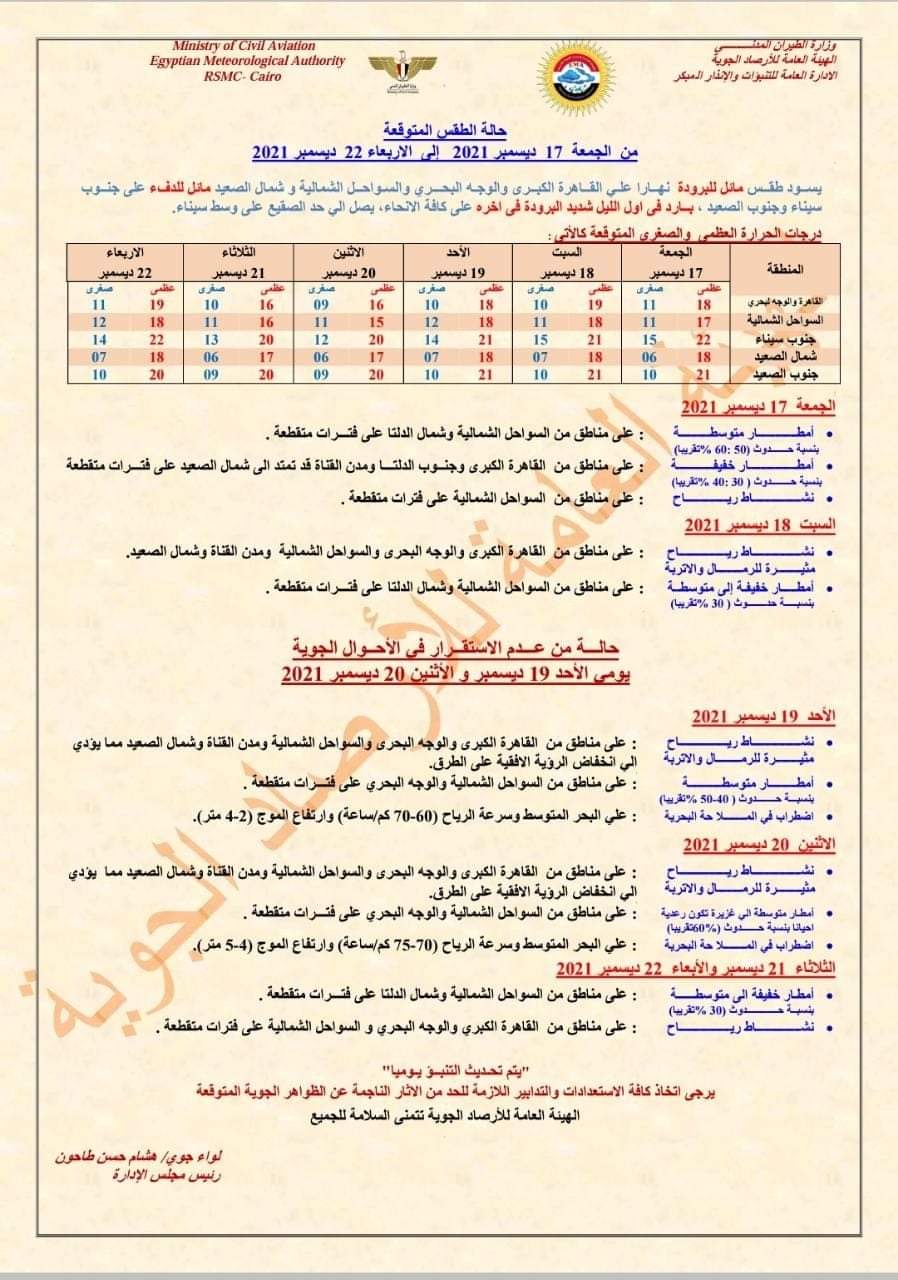 Ministry of Civil Aviation
Egyptian Meteorological Authority
RSMC- Cairo
وزارة الطيران المدنـــــي
الهيئة العامة للأرصاد الجوية
الادارة العامة للتنبؤات والإنذار المبكر
حالة الطقس المتوقعة
من الجمعة 17 ديسمبر 2021 إلى الاربعاء 22 ديسمبر 2021
يسود طقس مائل للبرودة نهارا علي القاهرة الكبرى والوجه البحري والسواحل الشمالية و شمال الصعيد مائل للدفء على جنوب
سيناء وجنوب الصعيد ، بارد فى اول الليل شديد البرودة فى اخره على كافة الانحاء، يصل الي حد الصقيع على وسط سيناء.
درجات الحرارة العظمى والصغرى المتوقعة كالأتي:
المنطقة الجمعة السبت الأحد الأثنين الثلاثاء الاربعاء
17 ديسمبر 18 ديسمبر 19 ديسمبر 20 ديسمبر 21 ديسمبر 22 ديسمبر
عظمى صغرى عظمى صغرى عظمى صغرى عظمى صغرى عظمى صغرى عظمى صغرى
القاهرة والوجه لبحري 18 11 19 10 18 10 16 09 16 10 19 11
السواحل الشمالية 17 11 18 11 18 12 15 11 16 11 18 12
جنوب سيناء 22 15 21 15 21 14 20 12 20 13 22 14
شمال الصعيد 18 06 18 07 18 07 17 06 17 06 18 07
جنوب الصعيد 21 10 21 10 21 10 20 09 20 09 20 10
الجمعة 17 ديسمبر 2021
• أمطـــار متوسطـــة : على مناطق من السواحل الشمالية وشمال الدلتا على فترات متقطعة .
بنسبة حـــدوث (50 :60 %تقريبا)
• أمطـــار خفيفـــة : على مناطق من القاهرة الكبرى وجنوب الدلتا ومدن القناة قد تمتد الى شمال الصعيد على فترات متقطعة
بنسبة حـــدوث (30 :40 %تقريبا)
• نشـــاط ريـــاح : على مناطق من السواحل الشمالية على فترات متقطعة .
السبت 18 ديسمبر 2021
• نشـــاط ريـــاح : على مناطق من القاهرة الكبرى والوجه البحرى والسواحل الشمالية ومدن القناة وشمال الصعيد.
مثيـرة للرمـال والاتربة
• أمطـار خفيفة إلى متوسطـة : على مناطق من السواحل الشمالية وشمال الدلتا على فترات متقطعة .
بنسبـة حـدوث (30 %تقريبا)
حالـــة من عــدم الاستقــرار في الأحــوال الجوية
يومي الأحد 19 ديسمبر و الأثنين 20 ديسمبر 2021
الأحد 19 ديسمبر 2021
• نشـــاط ريـــاح : على مناطق من القاهرة الكبرى والوجه البحرى والسواحل الشمالية ومدن القناة وشمال الصعيد مما يؤدي
مثيـرة للرمـال والاتربة الي انخفاض الرؤية الافقية على الطرق.
• أمطـــار متوسطـــة : على مناطق من السواحل الشمالية والوجه البحري على فترات متقطعة .
بنسبـة حـــدوث (40-50 %تقريبا)
• اضطراب في المـــلاحة البحرية : علي البحر المتوسط وسرعة الرياح (60-70 كم/ساعة) وارتفاع الموج (2-4 متر).
الاثنين 20 ديسمبر 2021
• نشـــاط ريـــاح : على مناطق من القاهرة الكبرى والوجه البحرى والسواحل الشمالية ومدن القناة وشمال الصعيد مما يؤدي
مثيـرة للرمـال والاتربة الي انخفاض الرؤية الافقية على الطرق.
• أمطار متوسطة الي غزيرة تكون رعدية : على مناطق من السواحل الشمالية والوجه البحري على فترات متقطعة .
احيانا بنسبة حـــدوث (60%تقريبا)
• اضطراب في المـــلاحة البحرية : علي البحر المتوسط وسرعة الرياح (70-75 كم/ساعة) وارتفاع الموج (4-5 متر).
الثلاثاء 21 ديسمبر والأبعاء 22 ديسمبر 2021
• أمطـار خفيفة الى متوسطـــة : على مناطق من السواحل الشمالية وشمال الدلتا على فترات متقطعة .
بنسبة حـــدوث (30 %تقريبا)
• نشـــاط ريـــاح : على مناطق من القاهرة الكبري والوجه البحري و السواحل الشمالية على فترات متقطعة .
"يتم تحديث التنبؤ يوميا"
يرجى اتخاذ كافة الاستعدادات والتدابير اللازمة للحد من الاثار الناجمة عن الظواهر الجوية المتوقعة
الهيئة العامة للأرصاد الجوية تتمنى السلامة للجميع
لواء جوي/ هشام حسن طاحون
رئيس مجلس الإدارة
الهيئة العامة للأرصاد الجوية